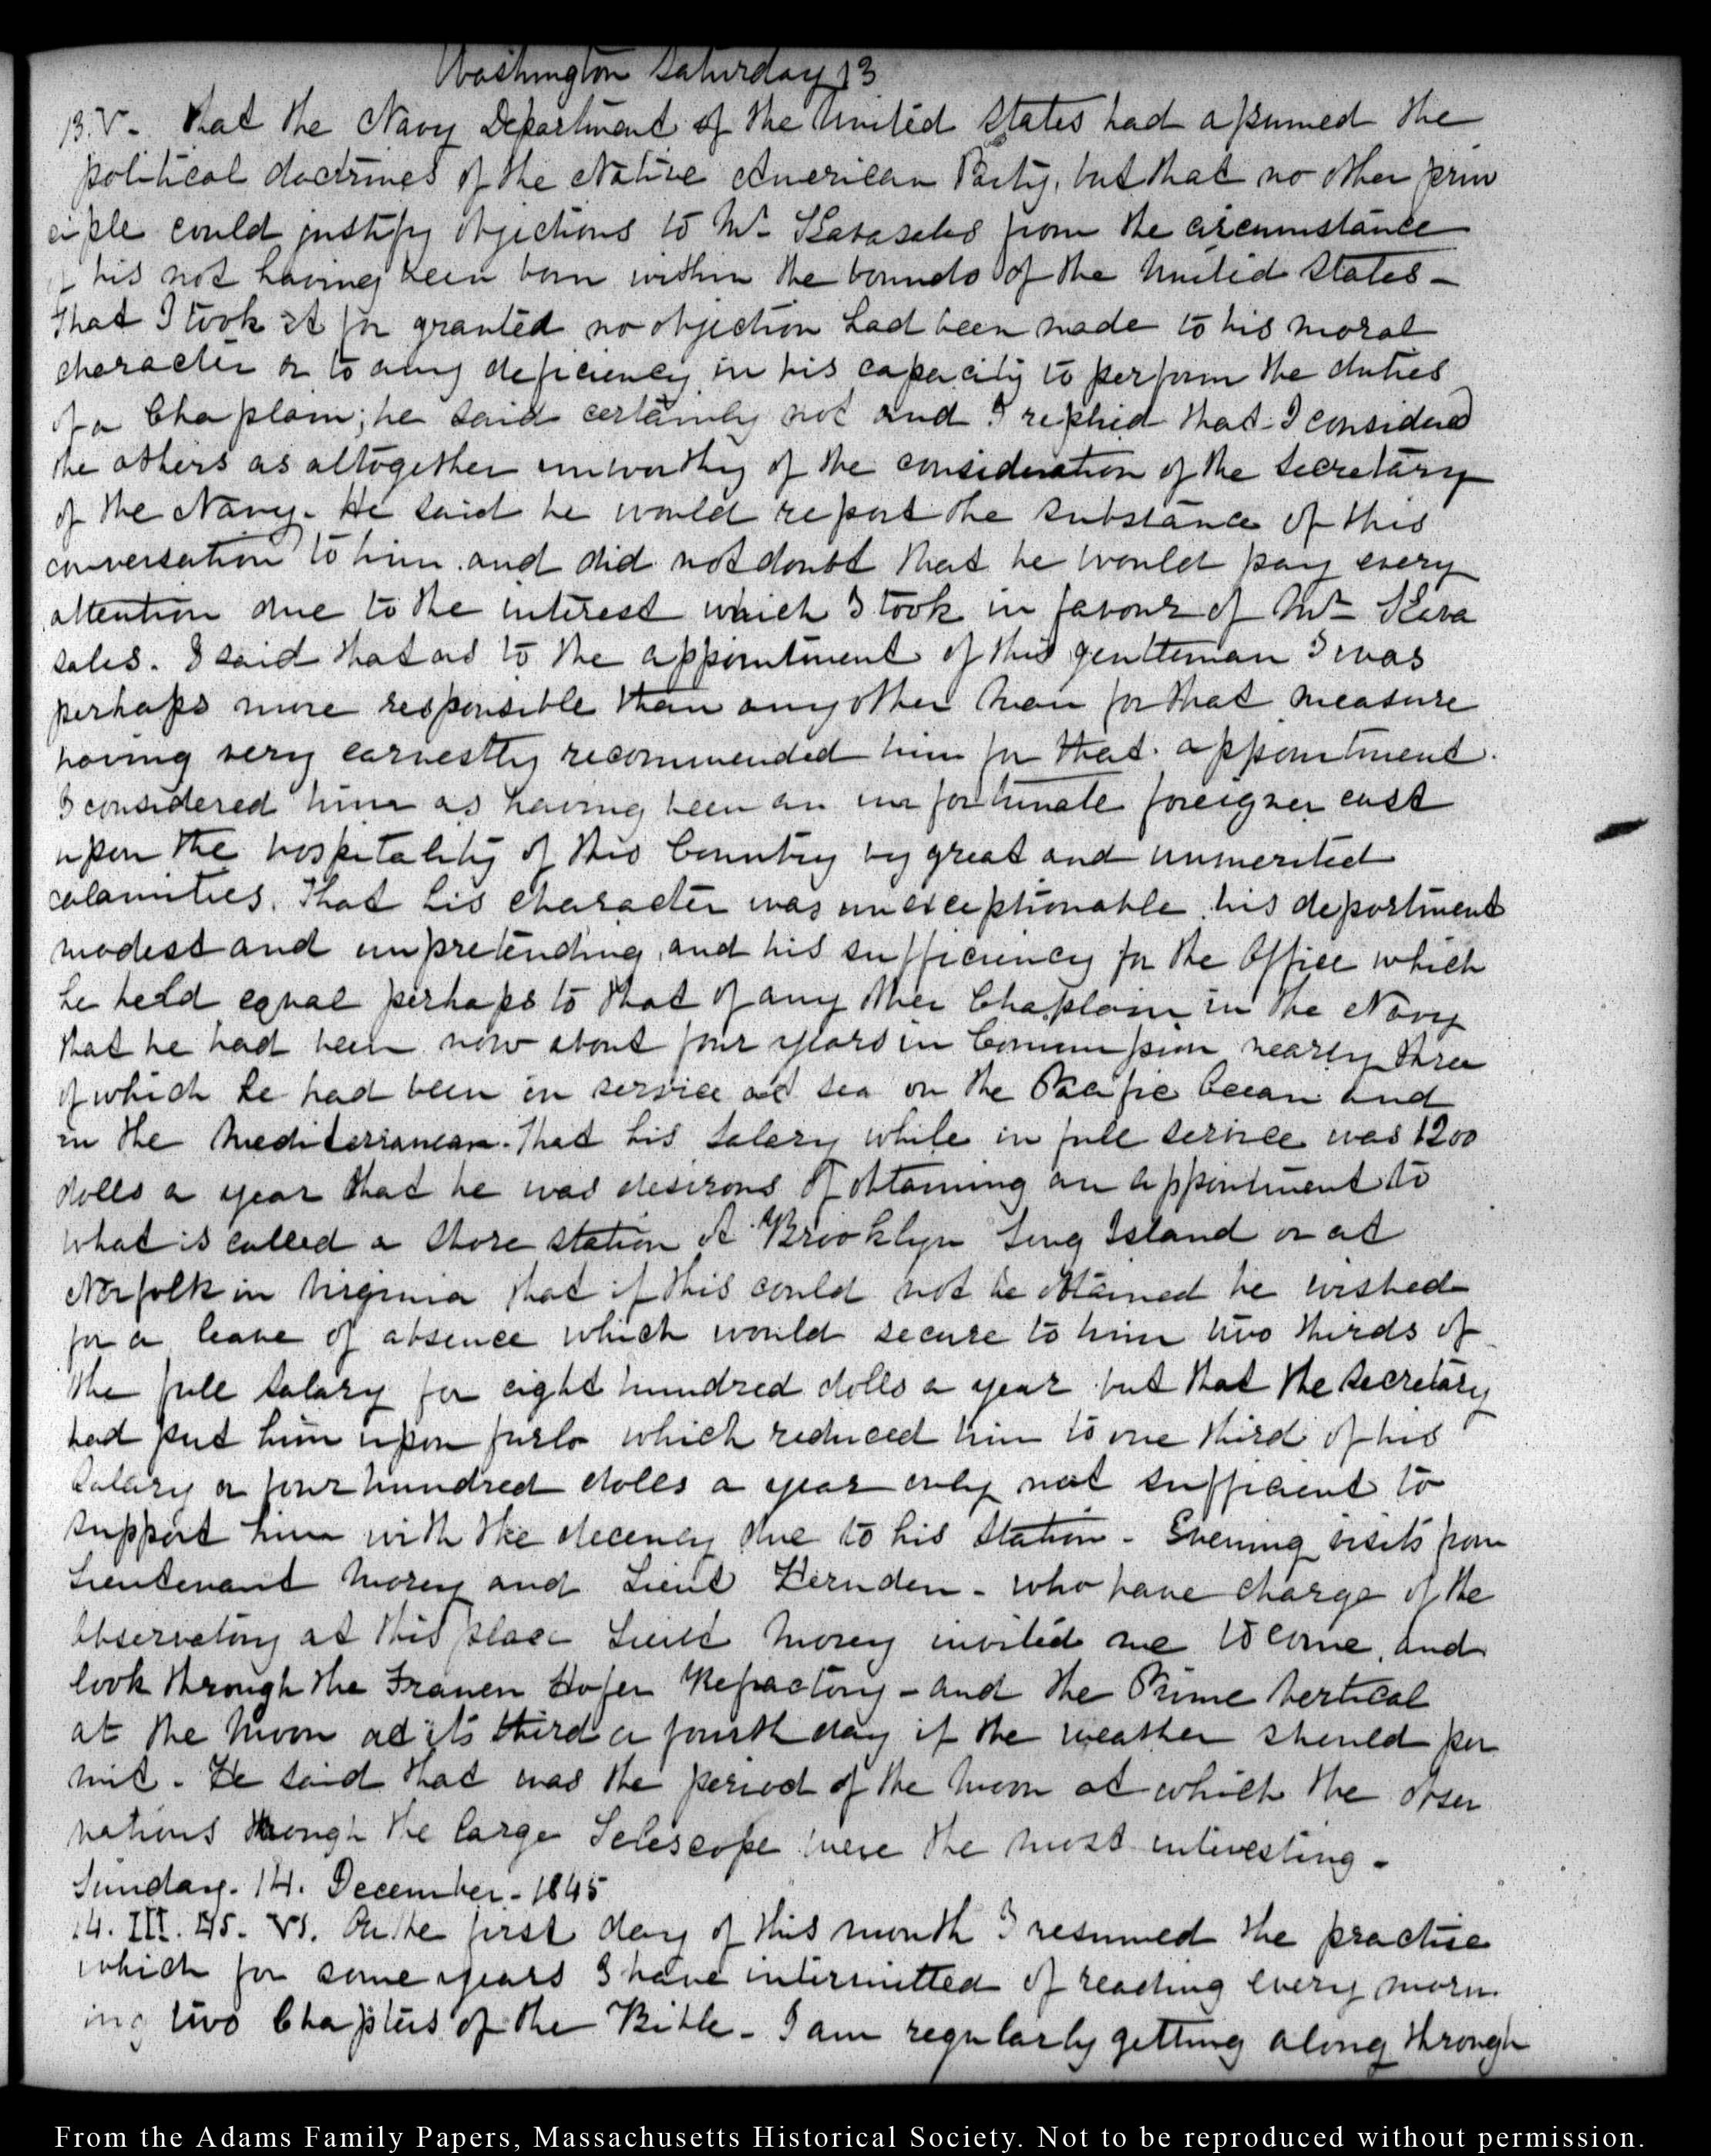 Washington Saturday 13
13. V. that the Navy Department of the United States had assumed the
political doctrines of the Native American Party, but that no other prin
ciple could justify objections to Mr. from the circumstance
of his not having been born within the bounds of the United States –
that I took it for granted no objection had been made to his moral
character or to any deficiency in his capacity to perform the duties
of a Chaplain; he said certainly not and I replied that I considered
the others as altogether unworthy of the consideration of the Secretary
of the Navy. He said he would report the substance of this
conversation to him and did not doubt that he would pay every
attention due to the interest which I took in favour of Mr.
sales. I said that as to the appointment of this gentleman I was
perhaps more responsible than any other man for that measure
having very earnestly recommended him for that appointment.
I considered him as having been an unfortunate foreigner cast
upon the hospitality of this Country by great and unmerited
calamities. That his character was unexceptionable, his deportment
modest and unpretending, and his sufficiency for the Office which
he held equal perhaps to that of any other Chaplain in the Navy
that he had been now about four years in Commission nearly three
of which he had been in service at sea on the Pacific Ocean and
in the Mediterranean. That his salary while in full service was 1200
dolls a year that he was desirous of obtaining an appointment to
what is called a Shore station at Brooklyn Long Island or at
Norfolk in Virginia that if this could not be obtained he wished
for a leave of absence which would secure to him two thirds of
the full salary for eight hundred dolls a year but that the Secretary
had put him upon furlo which reduced him to one third of his
salary or four hundred dolls a year only not sufficient to
support him with the decency due to his station – Evening visits from
Lieutenant Morey and Lieut Hernden – who have charge of the
Observatory at this place Lieut Morey invited me to come, and
look through the Frauen Hofer Refractory – and the Prime Vertical
at the Moon at its third or fourth day if the weather should per
mit. He said that was the period of the Moon at which the obser
vations through the large Telescope were the most interesting –
Sunday. 14. December – 1845
14. III. 45. VI. On the first day of this month I resumed the practice
which for some years I have intermitted of reading every morn
ing two Chapters of the Bible – I am regularly getting along through
From the Adams Family Papers, Massachusetts Historical Society. Not to be reproduced without permission.